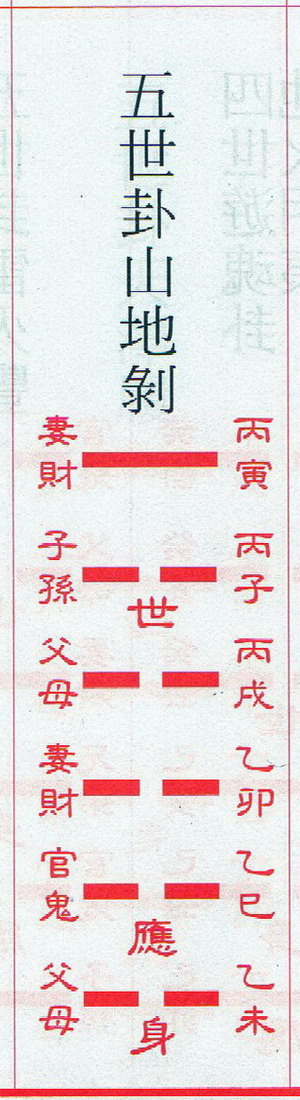 五世卦山地剝
妻財 丙寅
子孫 丙子
世
父母 丙戌
妻財 乙卯
官鬼 乙巳
應
父母 乙未
身